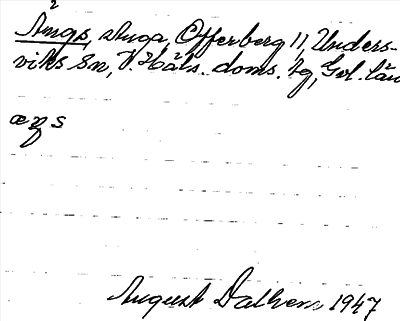 Ångs, stuga Offerberg 11, Unders-
viks Sn, V. Häls. doms. tg, Gvl. län
æŋs
August Dalhem 1947